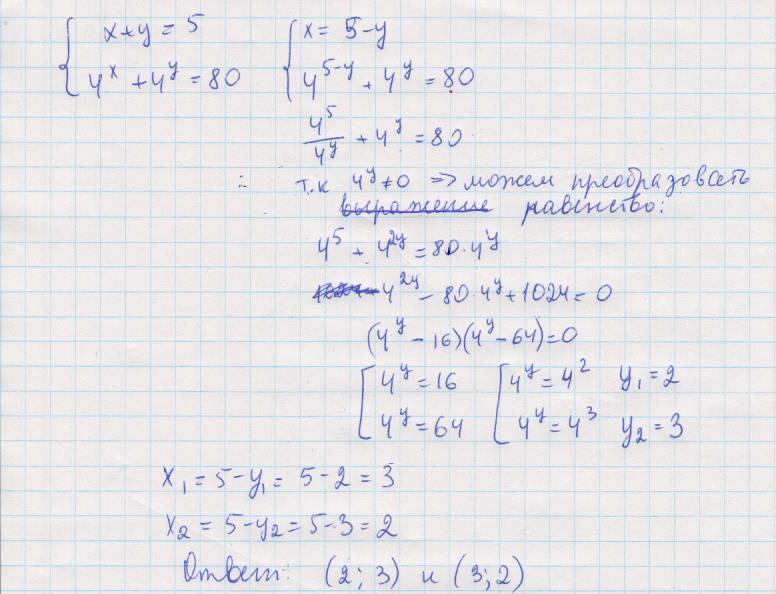 { x+y=5 { x=5-y
{ 4^x+4^y=80 { 4^(5-y)+4^y=80
4^5/4^y+4^y=80
т.к 4^y≠0 => можем преобразовать
выражение равенство:
4^5+4^(2y)=80·4^y
4^(2y)-80·4^y+1024=0
(4^y-16)(4^y-64)=0
[ 4^y=16 [ 4^y=4^2 y₁=2
[ 4^y=64 [ 4^y=4^3 y₂=3
x₁=5-y₁=5-2=3
x₂=5-y₂=5-3=2
Ответ: (2;3) и (3;2)